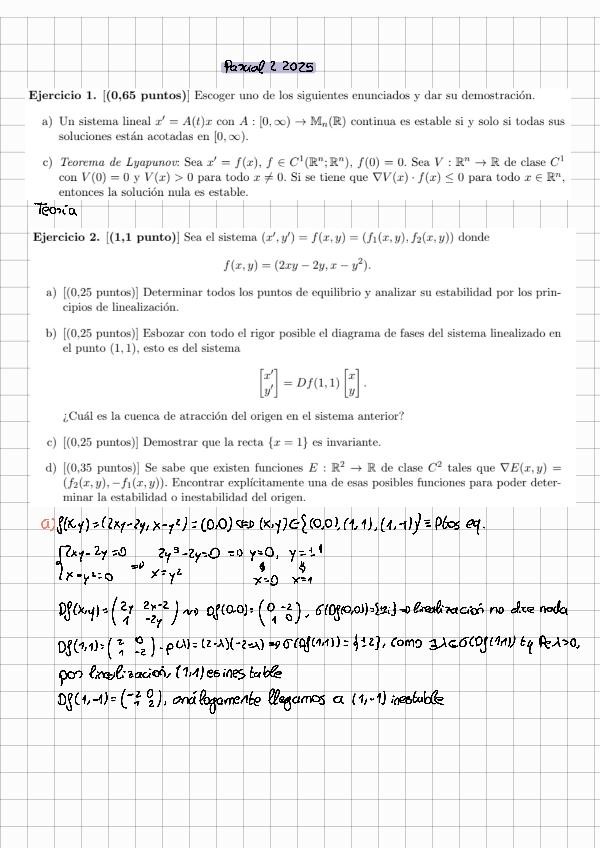 Parcial 2 2025
Ejercicio 1. [(0,65 puntos)] Escoger uno de los siguientes enunciados y dar su demostración.
a) Un sistema lineal x′ = A(t)x con A : [0, ∞) → 𝕄ₙ(ℝ) continua es estable si y solo si todas sus
soluciones están acotadas en [0, ∞).
c) Teorema de Lyapunov: Sea x′ = f(x), f ∈ C¹(ℝⁿ; ℝⁿ), f(0) = 0. Sea V : ℝⁿ → ℝ de clase C¹
con V(0) = 0 y V(x) > 0 para todo x ≠ 0. Si se tiene que ∇V(x) · f(x) ≤ 0 para todo x ∈ ℝⁿ,
entonces la solución nula es estable.
Teoría
Ejercicio 2. [(1,1 punto)] Sea el sistema (x′, y′) = f(x, y) = (f₁(x, y), f₂(x, y)) donde
f(x, y) = (2xy − 2y, x − y²).
a) [(0,25 puntos)] Determinar todos los puntos de equilibrio y analizar su estabilidad por los prin-
cipios de linealización.
b) [(0,25 puntos)] Esbozar con todo el rigor posible el diagrama de fases del sistema linealizado en
el punto (1, 1), esto es del sistema
[x′ y′] = Df(1, 1) [x y] .
¿Cuál es la cuenca de atracción del origen en el sistema anterior?
c) [(0,25 puntos)] Demostrar que la recta {x = 1} es invariante.
d) [(0,35 puntos)] Se sabe que existen funciones E : ℝ² → ℝ de clase C² tales que ∇E(x, y) =
(f₂(x, y), −f₁(x, y)). Encontrar explícitamente una de esas posibles funciones para poder deter-
minar la estabilidad o inestabilidad del origen.
a) f(x,y) = (2xy-2y, x-y²) = (0,0) ⇔ (x,y) ∈ {(0,0), (1,1), (1,-1)} ≡ Ptos eq.
{2xy-2y=0 ⇒ 2y³-2y=0 ⇒ y=0, y=±1
x-y²=0 x=y² x=0 x=1
Df(x,y) = (2y 2x-2 / 1 -2y) ⇝ Df(0,0) = (0 -2 / 1 0), σ(Df(0,0))={±i} → linealización no dice nada
Df(1,1) = (2 0 / 1 -2) · p(λ) = (2-λ)(-2-λ) ⇒ σ(Df(1,1)) = {±2}, como ∃λ∈σ(Df(1,1)) tq Re λ>0,
por linealización, (1,1) es inestable
Df(1,-1) = (-2 0 / 1 2), análogamente llegamos a (1,-1) inestable